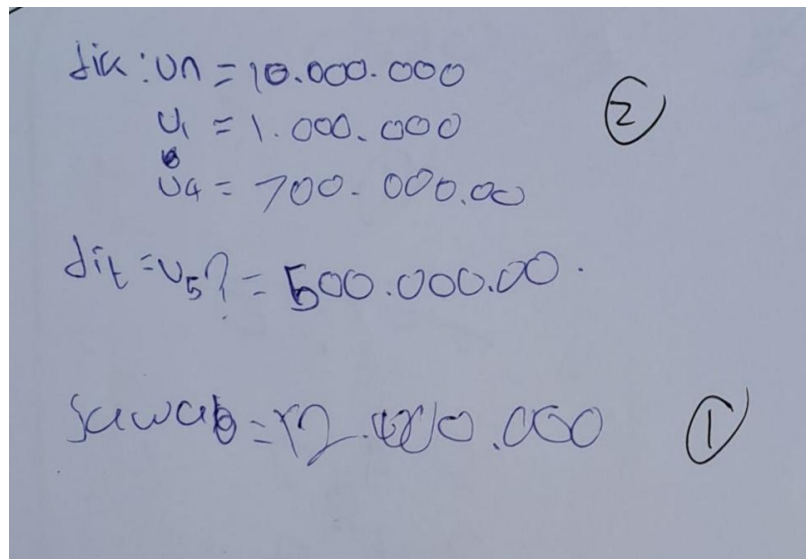 dik : Un = 10.000.000
U1 = 1.000.000
2
U4 = 700.000.00
dit = U5? = 500.000.00.
Jawab = 12.000.000
1